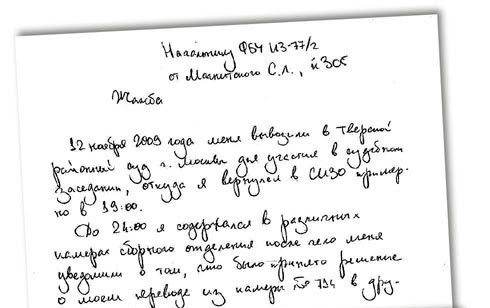 Начальнику ФБУ ИЗ-77/2
от Магнитского С.Л., к 305
Жалоба
12 ноября 2009 года меня вывозили в Тверской
районный суд г. Москвы для участия в судебном
заседании, откуда я вернулся в СИЗО пример-
но в 19:00.
До 24:00 я содержался в различных
камерах сборного отделения после чего меня
уведомили о том, что было принято решение
о моем переводе из камеры № 714 в дру-